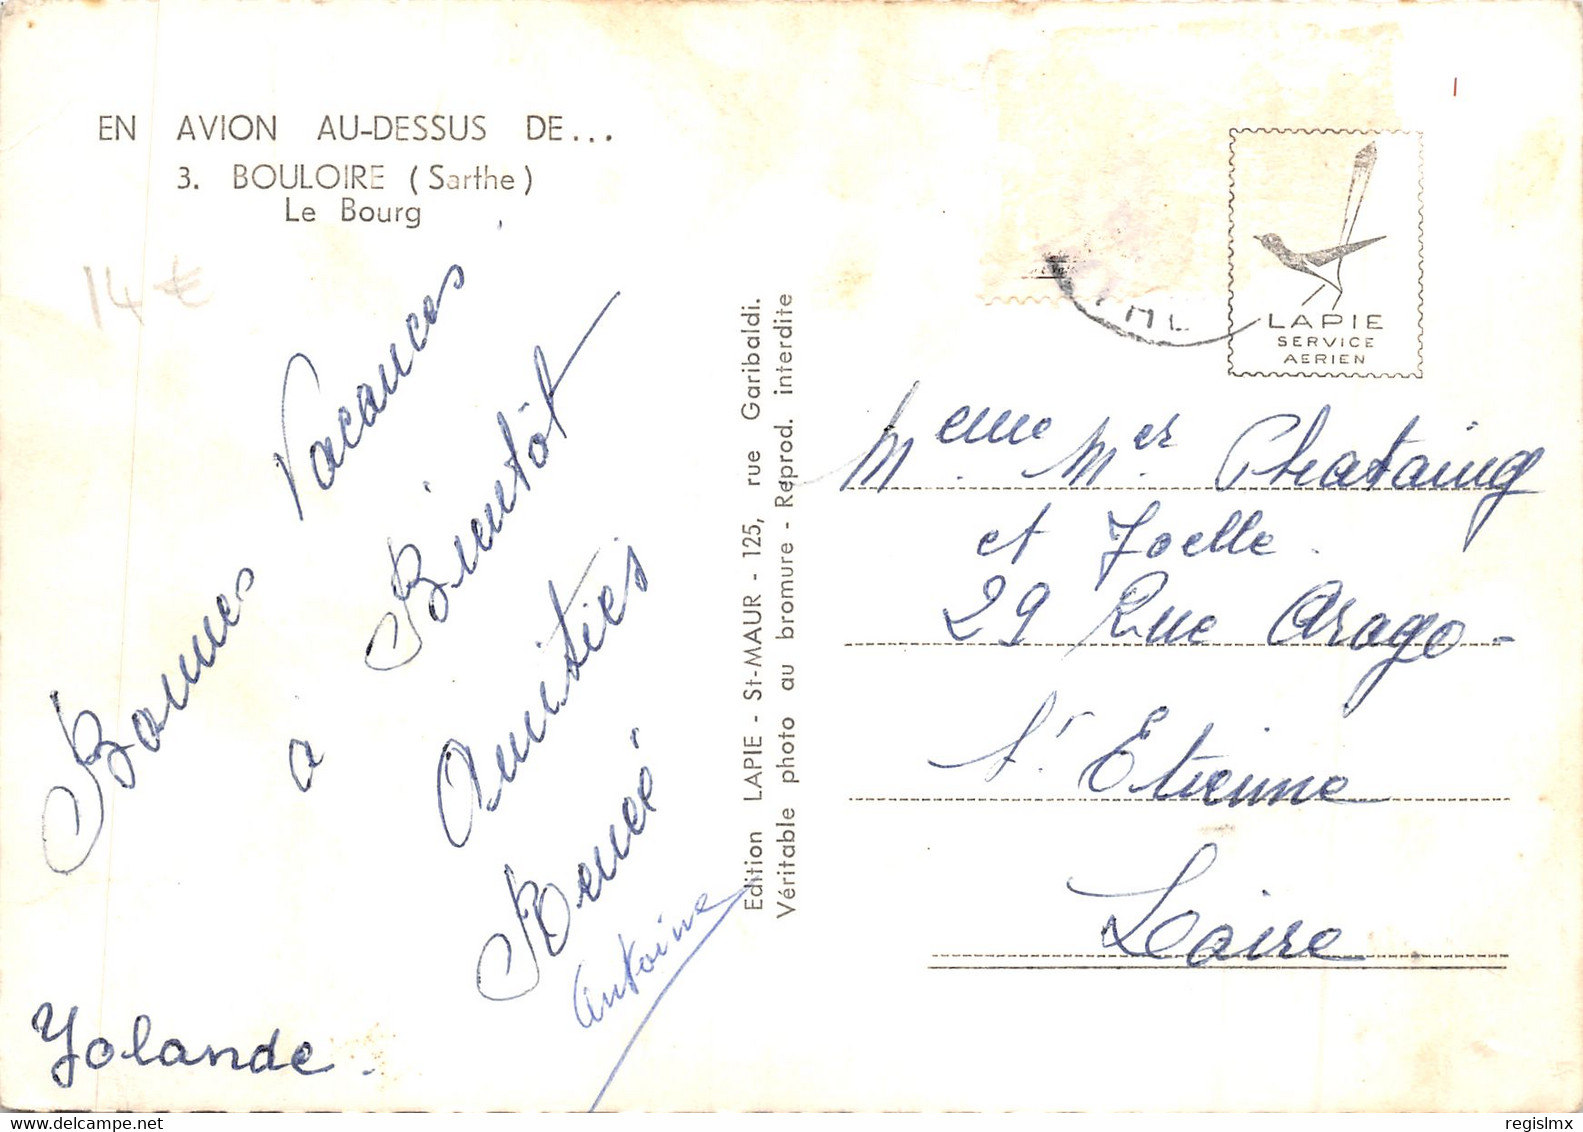 EN AVION AU-DESSUS DE...
3. BOULOIRE (Sarthe)
Le Bourg
14 €
Bonnes Vacances
a Bientôt
Amitiés
Renée
Antoine
Yolande.
Edition LAPIE - St-MAUR - 125, rue Garibaldi.
Véritable photo au bromure - Reprod. interdite
LAPIE
SERVICE
AERIEN
Meme Mer Phataing
et Joelle.
29 Rue Arago -
St Etienne
Loire
regislmx